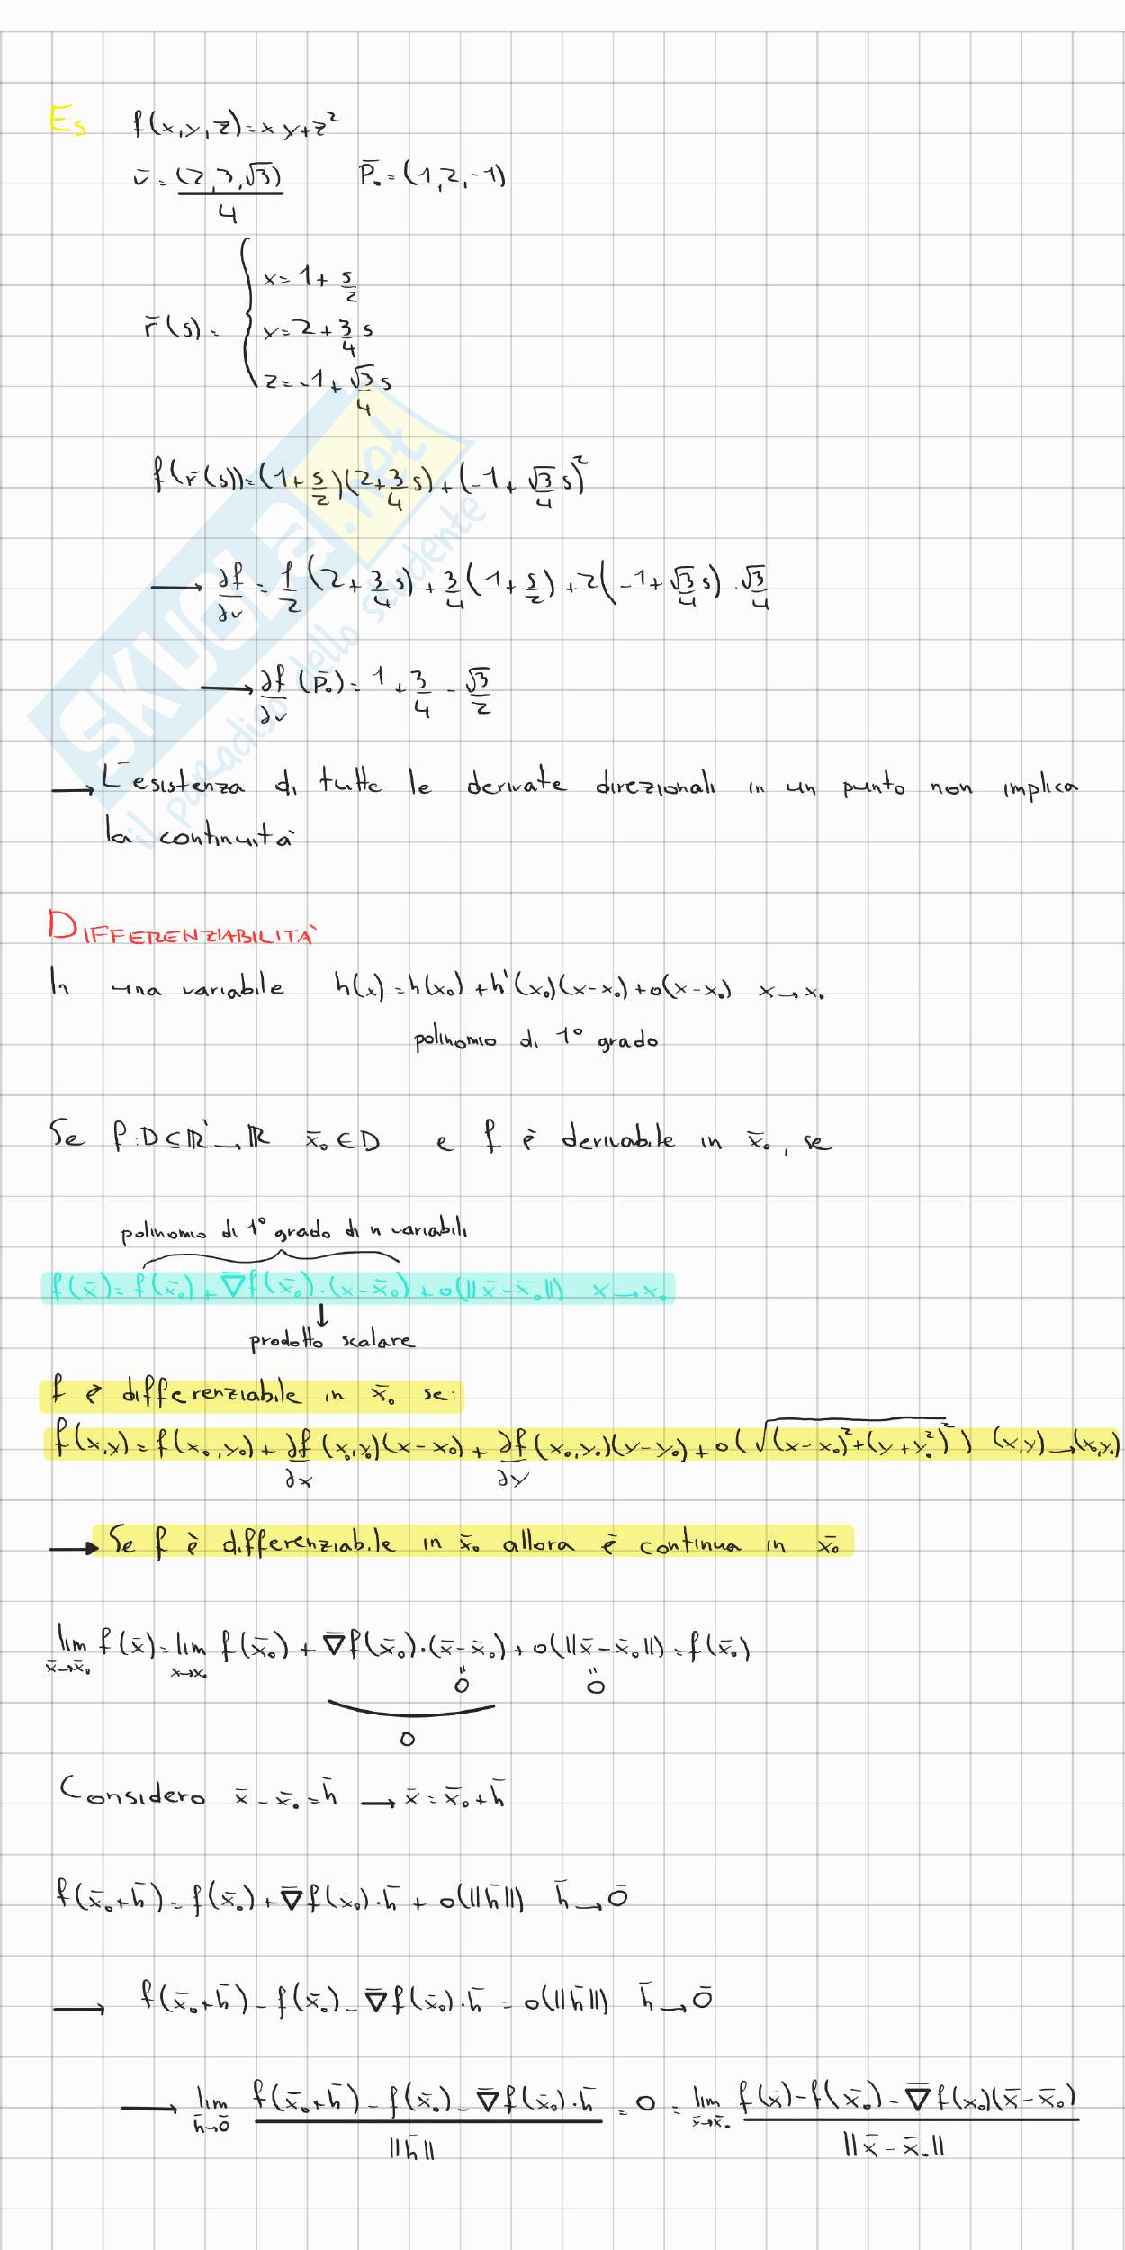 Es f(x,y,z)=xy+z²
v̄ = (2,3,√3)/4   P̄₀=(1,2,-1)
r̄(s)= { x=1+ s/2
y=2+ 3/4 s
z=-1+ √3/4 s
f(r̄(s))=(1+ s/2)(2+ 3/4 s)+(-1+ √3/4 s)²
→ ∂f/∂v = 1/2 (2+ 3/4 s)+ 3/4 (1+ s/2)+2(-1+ √3/4 s)· √3/4
→ ∂f/∂v (P̄₀)= 1 + 3/4 - √3/2
→ L'esistenza di tutte le derivate direzionali in un punto non implica
la continuità
DIFFERENZIABILITÀ
In una variabile h(x)=h(x₀)+h'(x₀)(x-x₀)+o(x-x₀) x→x₀
polinomio di 1° grado
Se f:D⊂ℝ →ℝ x̄₀∈D e f è derivabile in x̄₀, se
polinomio di 1° grado di n variabili
f(x̄)=f(x̄₀)+∇̄f(x̄₀)·(x-x̄₀)+o(||x̄-x̄₀||) x→x₀
prodotto scalare
f è differenziabile in x̄₀ se:
f(x,y)=f(x₀,y₀)+ ∂f/∂x (x₀,y₀)(x-x₀)+ ∂f/∂y (x₀,y₀)(y-y₀)+o(√((x-x₀)²+(y+y₀)²)) (x,y)→(x₀,y₀)
→ Se f è differenziabile in x̄₀ allora è continua in x̄₀
lim x̄→x̄₀ f(x̄)= lim x→x₀ f(x̄₀)+∇̄f(x̄₀)·(x̄-x̄₀)+o(||x̄-x̄₀||)=f(x̄₀)
" 0   " 0
0
Considero x̄-x̄₀=h̄ → x̄=x̄₀+h̄
f(x̄₀+h̄)=f(x̄₀)+∇̄f(x₀)·h̄+o(||h̄||) h̄→0̄
→ f(x̄₀+h̄)-f(x̄₀)-∇̄f(x̄₀)·h̄=o(||h̄||) h̄→0̄
→ lim h̄→0̄ (f(x̄₀+h̄)-f(x̄₀)-∇̄f(x̄₀)·h̄)/||h̄|| = 0 = lim x̄→x̄₀ (f(x)-f(x̄₀)-∇̄f(x₀)(x̄-x̄₀))/||x̄-x̄₀||
SKUOLA.net
il paradiso dello studente